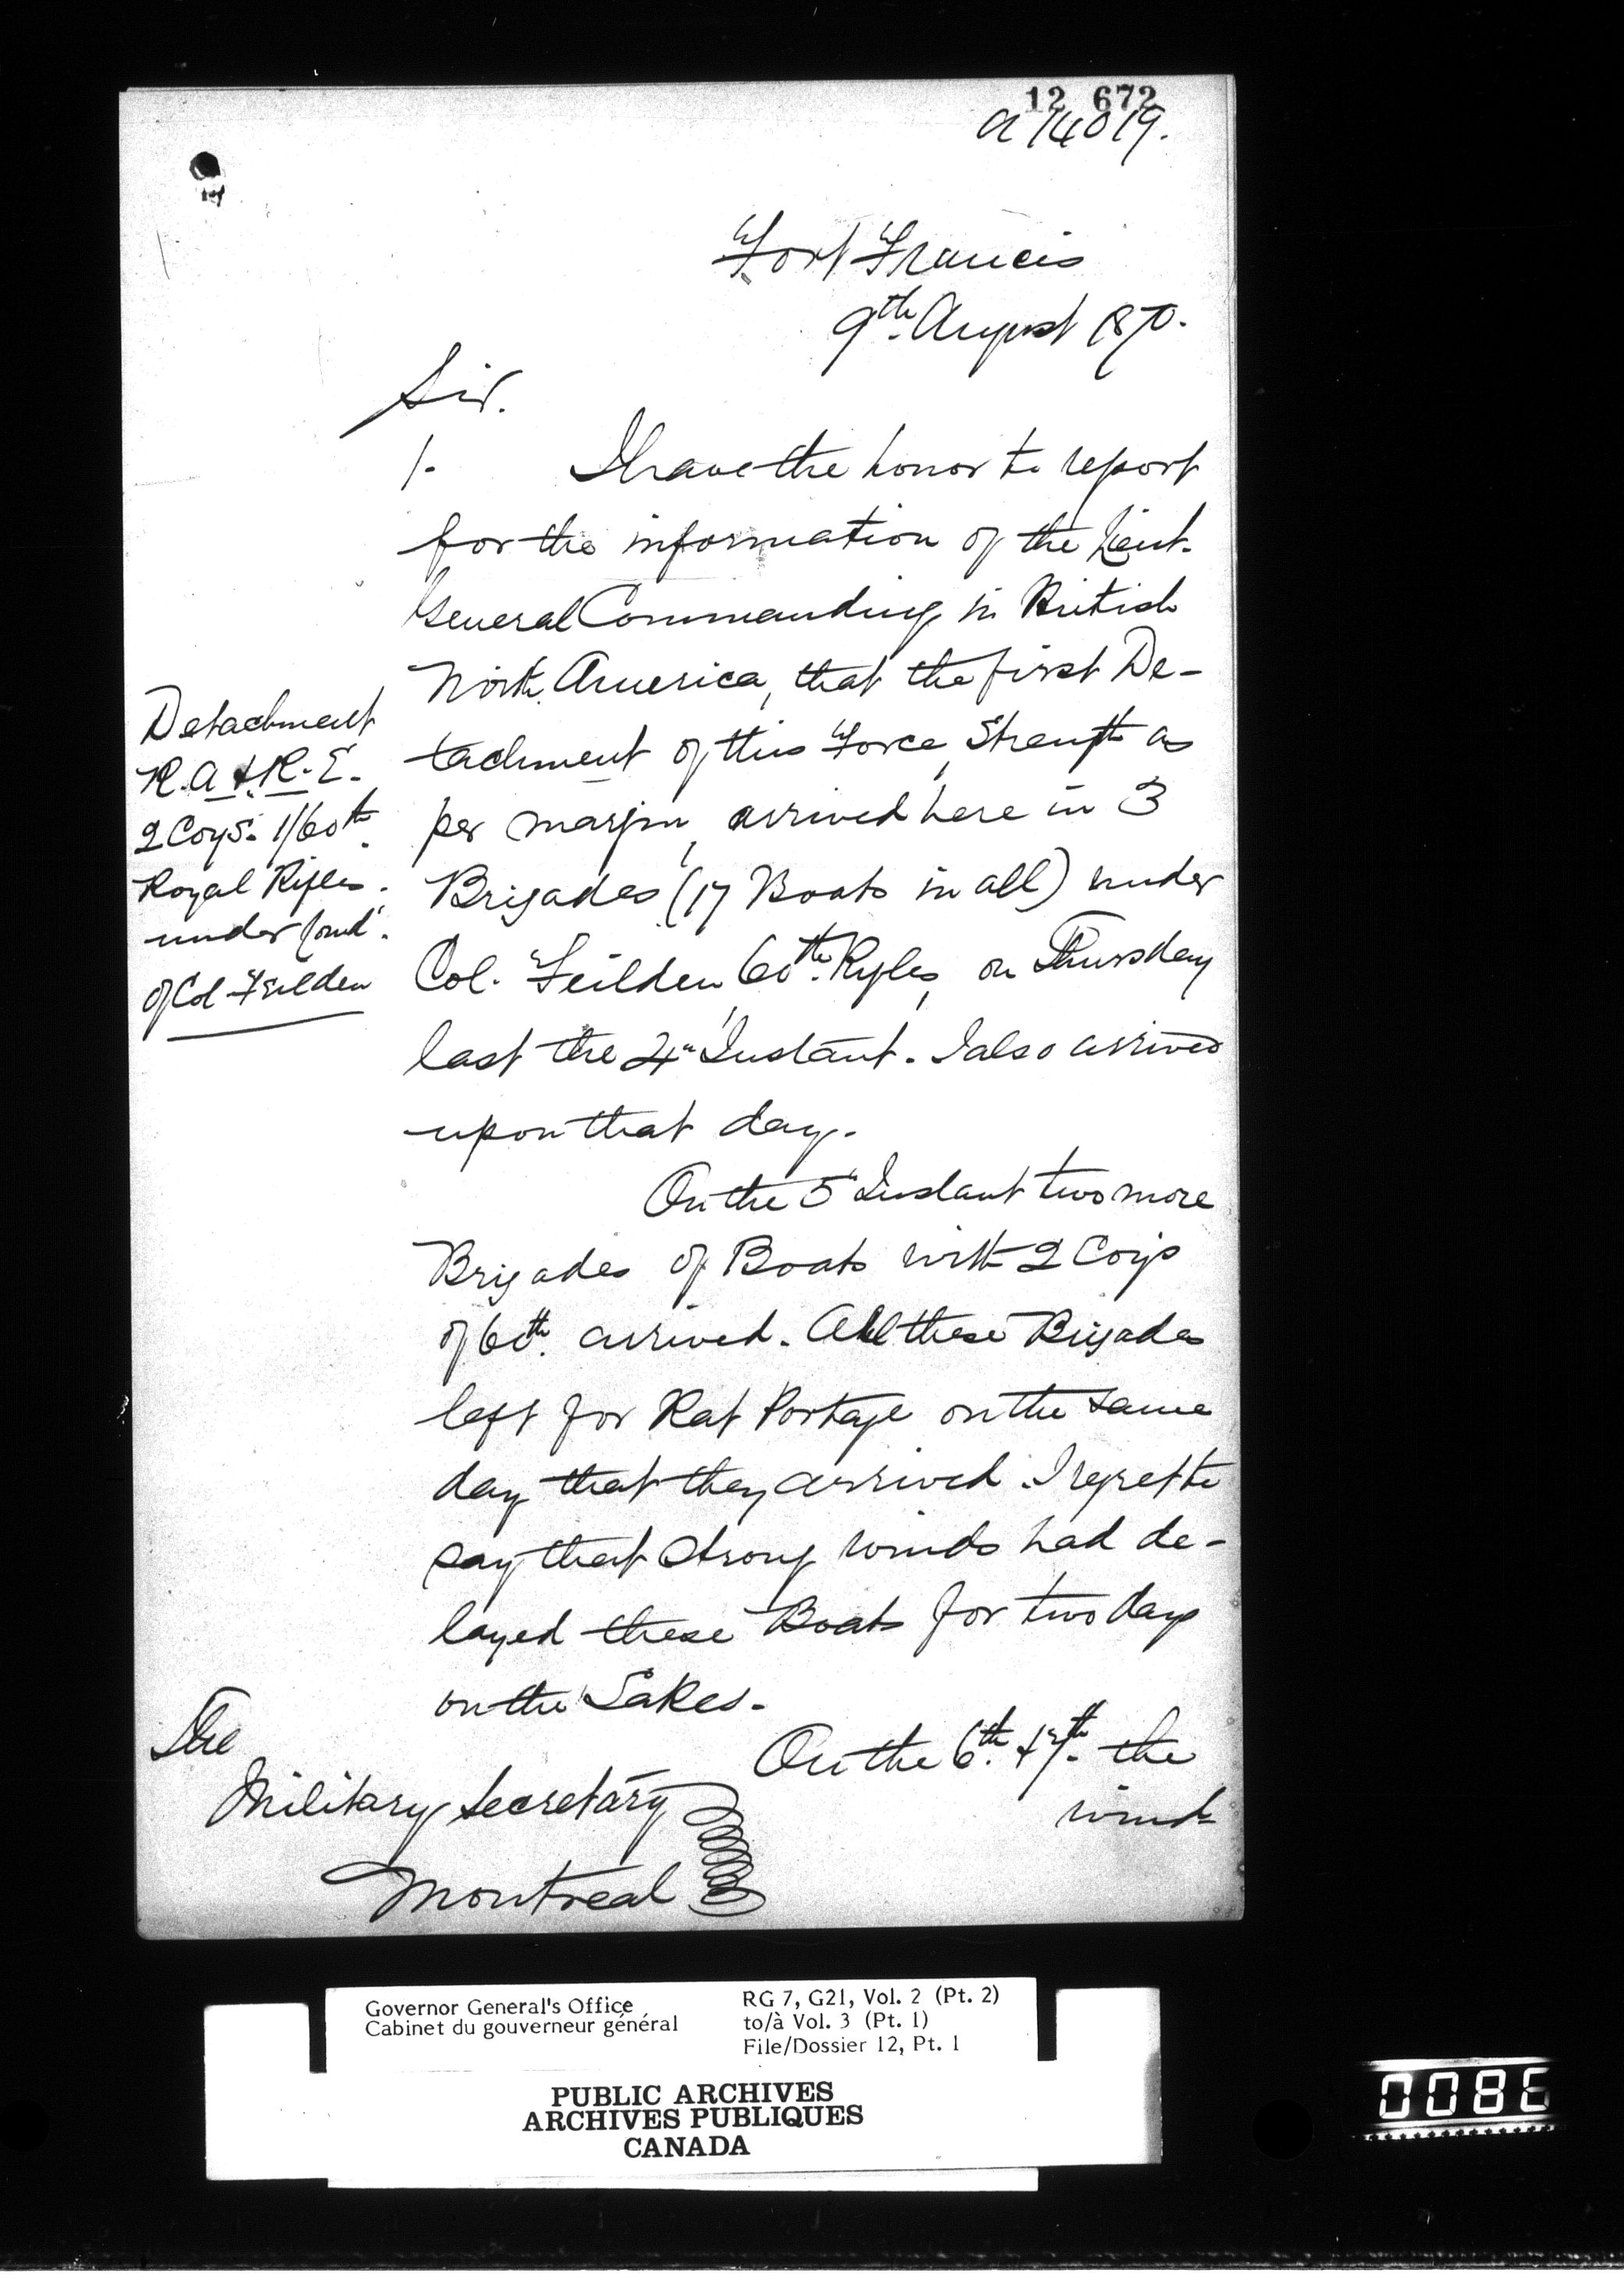 12 672
A 14019.
Fort Francis
9th August 1870.
Sir.
1. I have the honor to report
for the information of the Lieut.
General Commanding in British
North America, that the first De-
tachment of this Force, Strength as
per margin, arrived here in 3
Brigades (17 Boats in all) under
Col. Feilden, 60th Rifles, on Thursday
last the 4th Instant. I also arrived
upon that day.
Detachment
R.A & R.E.
2 Coys. 1/60th
Royal Rifles.
under Comd.
of Col Feilden
On the 5th Instant two more
Brigades of Boats with 2 Coys
of 60th arrived. All these Brigades
left for Rat Portage on the same
day that they arrived. I regret to
say that strong winds had de-
layed these Boats for two days
on the Lakes.
On the 6th & 7th the
wind
The
Military Secretary
Montreal
Governor General's Office
Cabinet du gouverneur général
RG 7, G21, Vol. 2 (Pt. 2)
to/à Vol. 3 (Pt. 1)
File/Dossier 12, Pt. 1
PUBLIC ARCHIVES
ARCHIVES PUBLIQUES
CANADA